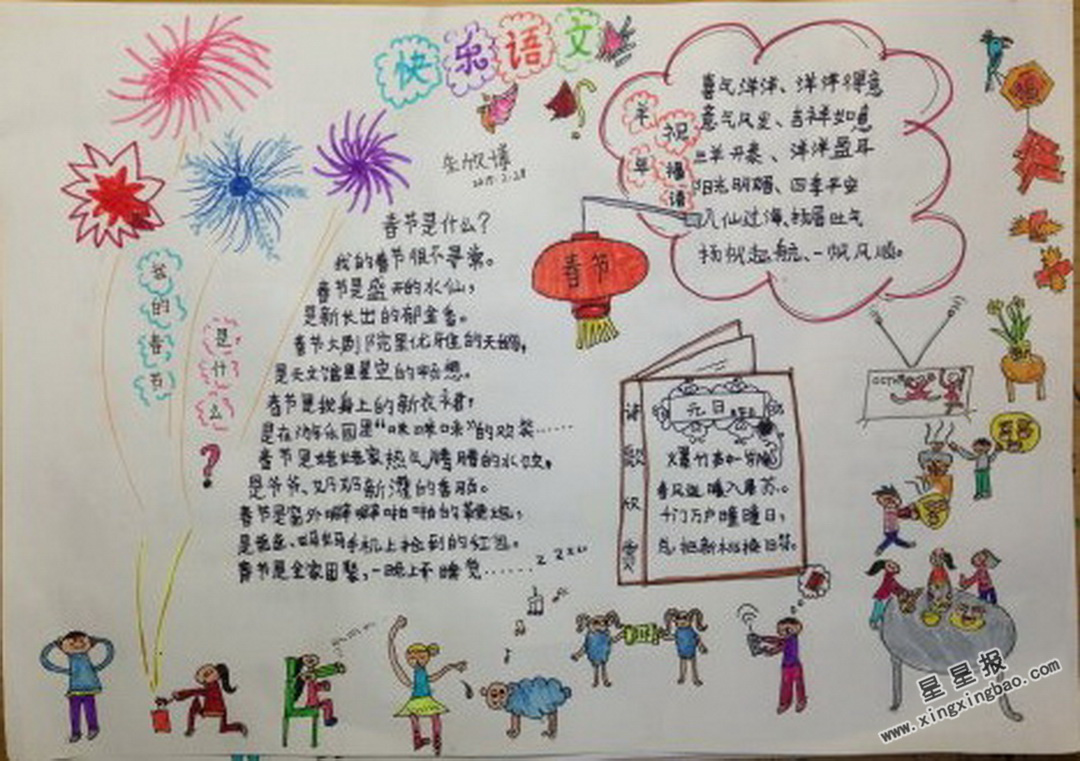 快乐语文
2015.2.28
羊祝
羊福
语
喜气洋洋、洋洋得意
意气风发、吉祥如意
三羊开泰、洋洋盈耳
阳光明媚、四季平安
八仙过海、扬眉吐气
扬帆起航、一帆风顺。
福
春节
我的春节
是什么
?
春节是什么?
我的春节很不寻常。
春节是盛开的水仙,
是新长出的郁金香。
春节大剧院里优雅的天鹅,
是天文馆里星空的畅想。
春节是我身上的新衣裙,
是在游乐园里“咪咪咪”的欢笑……
春节是姥姥家热气腾腾的水饺,
是爷爷、奶奶新灌的香肠。
春节是窗外噼噼啪啪的鞭炮,
是爸爸、妈妈手机上抢到的红包。
春节是全家团聚,一晚上不睡觉……
诗歌欣赏
元日
爆竹声中一岁除
春风送暖入屠苏。
千门万户曈曈日,
总把新桃换旧符。
CCTV
星星报
www.xingxingbao.com